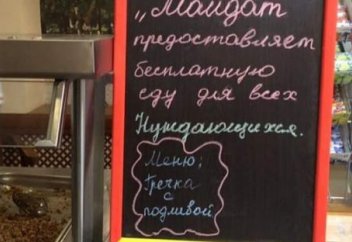 „Майдат
предоставляет
бесплатную
еду для всех
Нуждающихся.
Меню:
Гречка
с
подливой